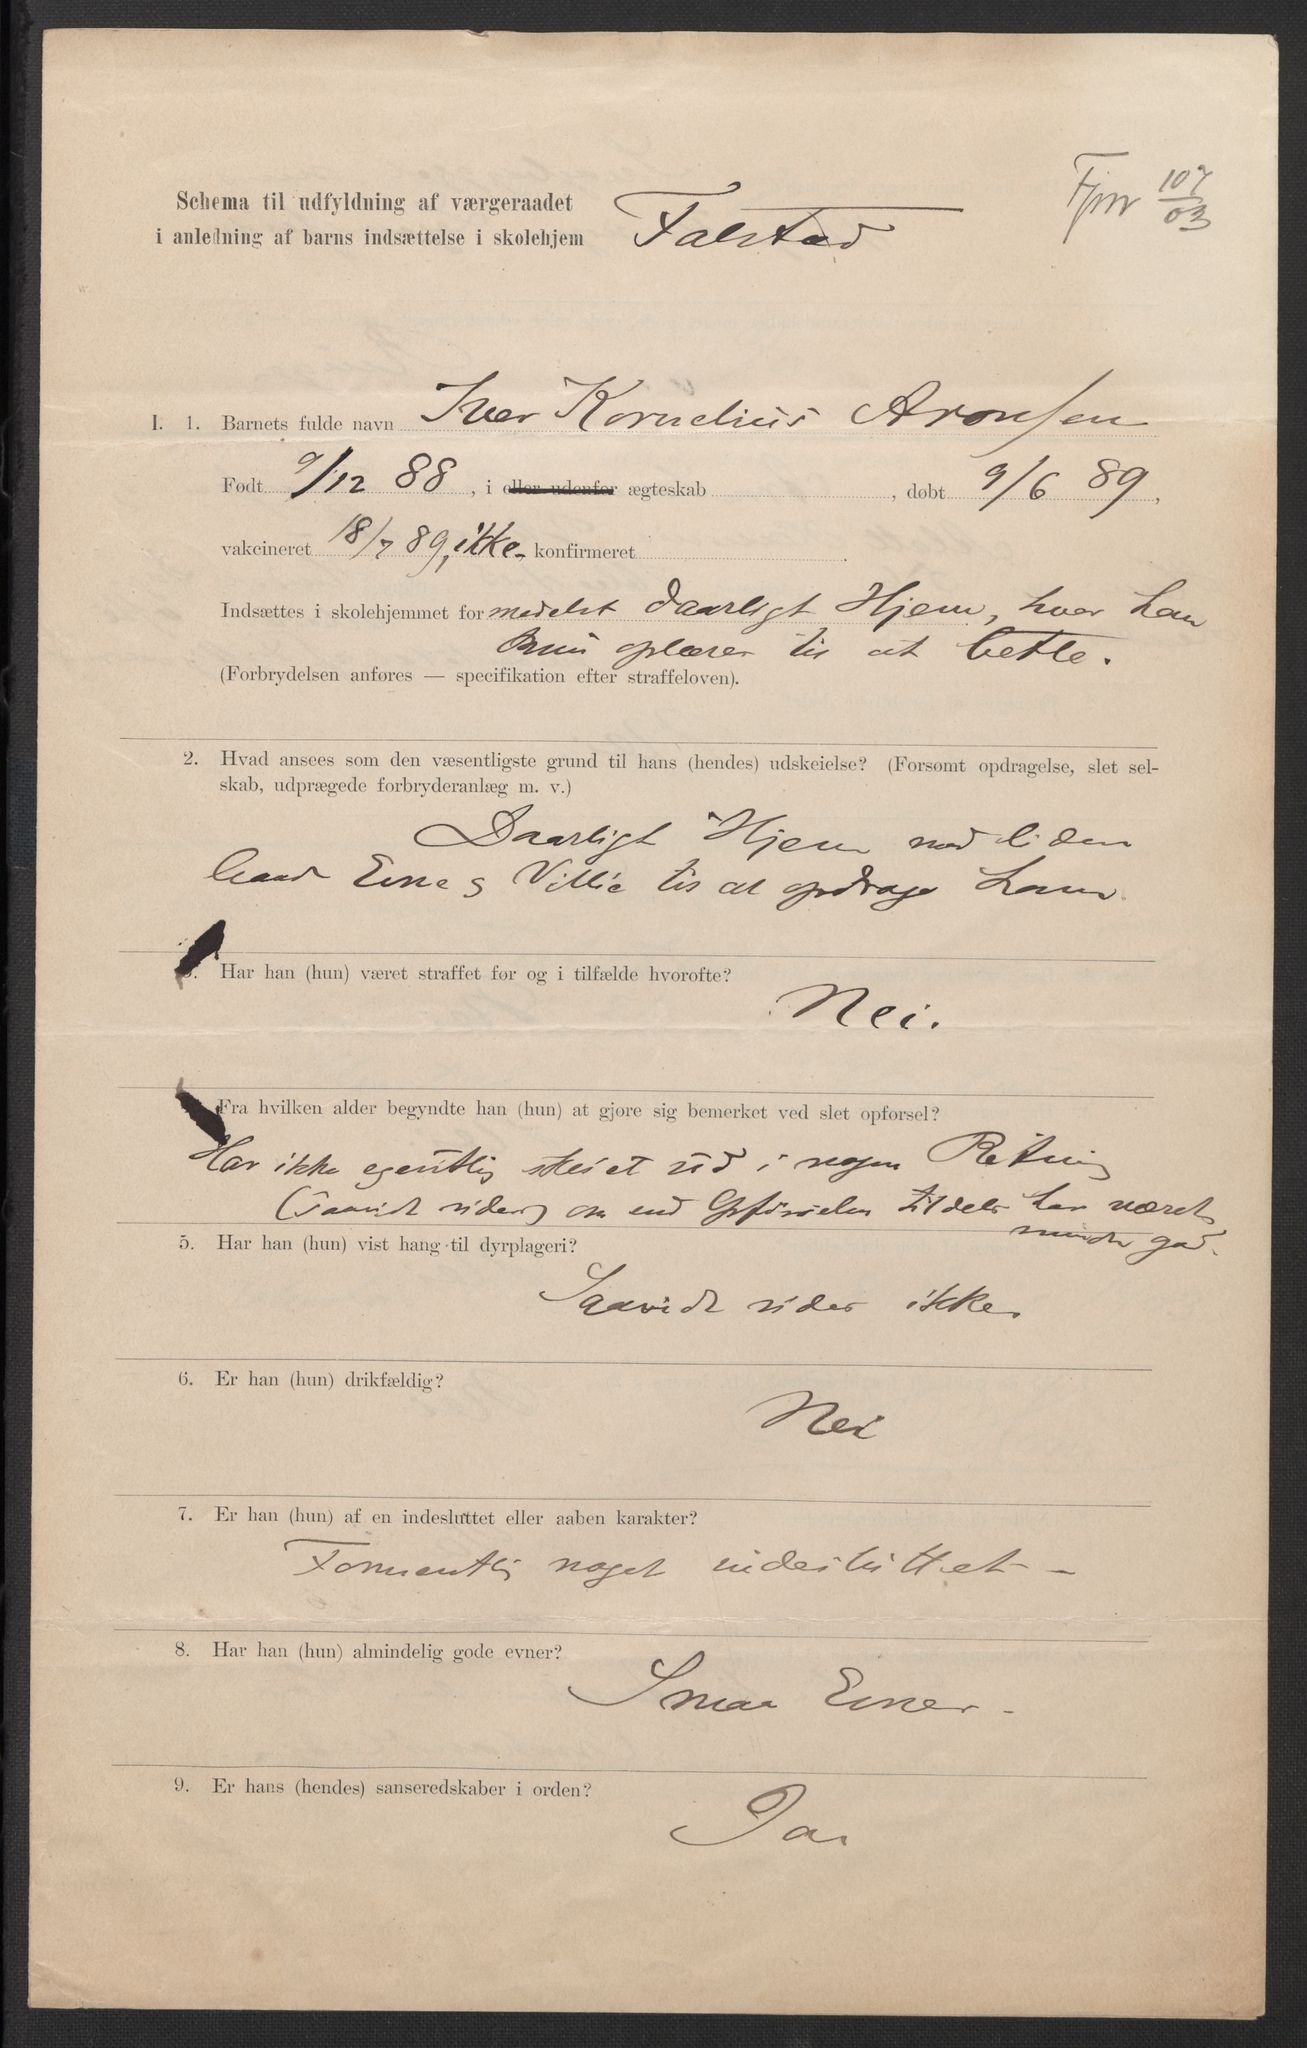 Schema til udfyldning af værgeraadet
i anledning af barns indsættelse i skolehjem Falstad
107
03
I. 1. Barnets fulde navn Iver Kornelius Aronsen
Født 9/12 88, i eller udenfor ægteskab , døbt 9/6 89,
vakcineret 18/7 89, ikke konfirmeret
Indsættes i skolehjemmet formedelst daarligt Hjem, hvor han
kun oplæres til at betle.
(Forbrydelsen anføres — specifikation efter straffeloven).
2. Hvad ansees som den væsentligste grund til hans (hendes) udskeielse? (Forsømt opdragelse, slet sel-
skab, udprægede forbryderanlæg m. v.)
Daarligt Hjem med liden
baade Evne og Villie til at opdrage ham.
3. Har han (hun) været straffet før og i tilfælde hvorofte?
Nei.
Fra hvilken alder begyndte han (hun) at gjøre sig bemerket ved slet opførsel?
Har ikke egentlig skeiet ud i nogen Retning
(saavidt vides) om end Opførselen tildels har været
mindre god.
5. Har han (hun) vist hang til dyrplageri?
Saavidt vides ikke
6. Er han (hun) drikfældig?
Nei
7. Er han (hun) af en indesluttet eller aaben karakter?
Formentlig noget indesluttet -
8. Har han (hun) almindelig gode evner?
Smaa Evner -
9. Er hans (hendes) sanseredskaber i orden?
Ja